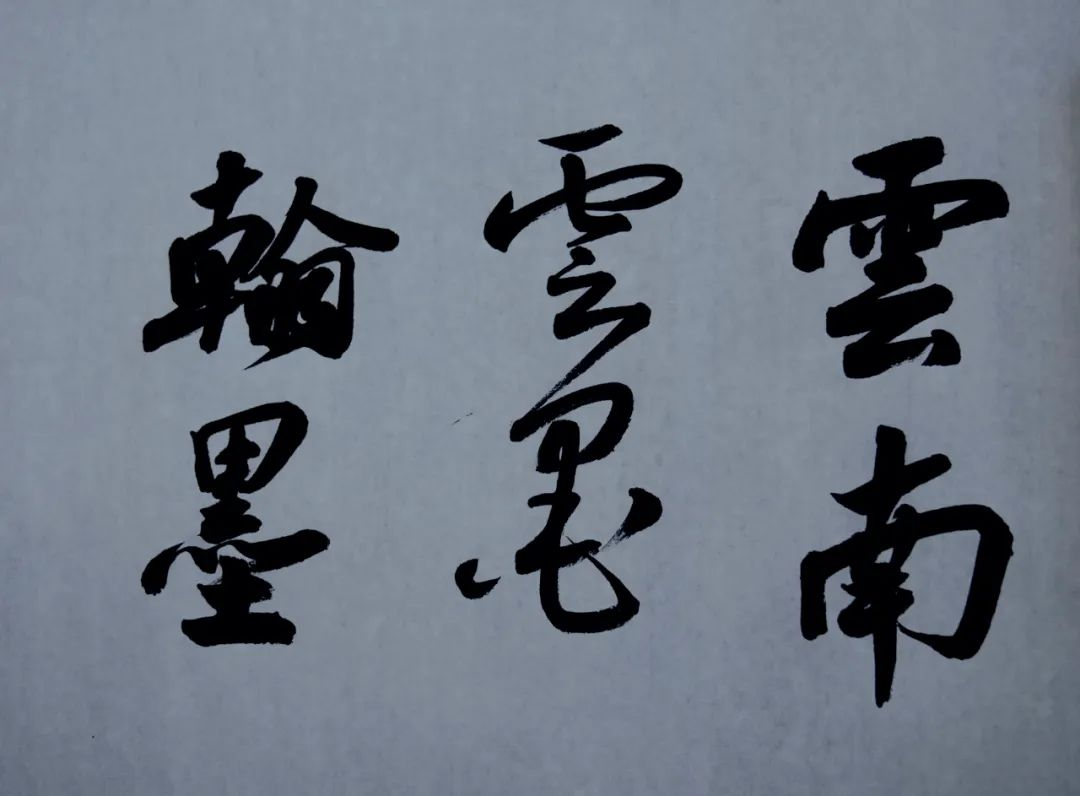 雲南
雲
翰墨